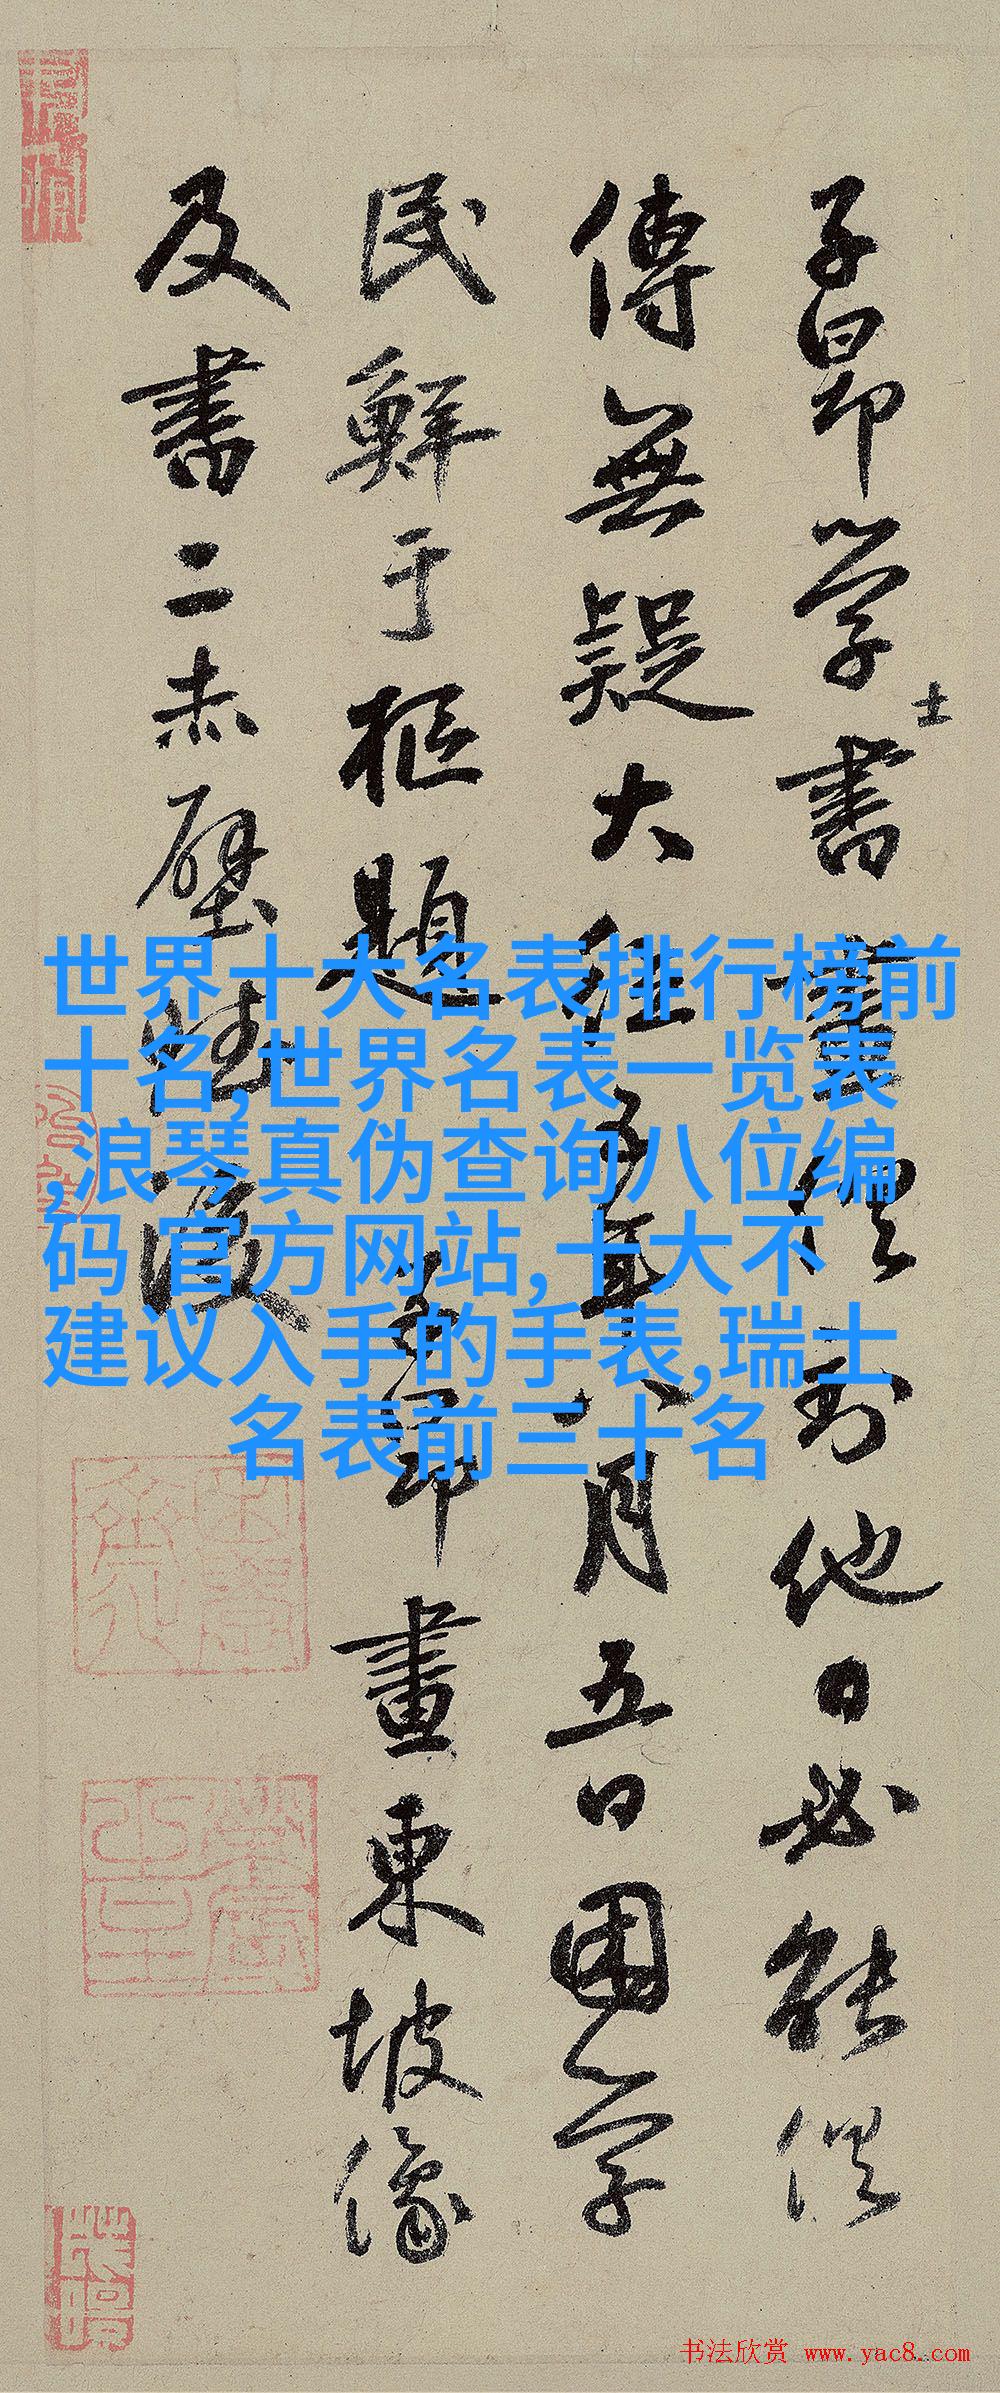 子昂學士書畫俱到他日必能俱
傳無疑大德五年八月五日困學
民鮮于樞題子昂畫東坡像
及書二赤壁賦後
世界十大名表排行榜前
十名,世界名表一览表
,浪琴真伪查询八位编
码 官方网站,十大不
建议入手的手表,瑞士
名表前三十名
书法欣赏 www.yac8.com